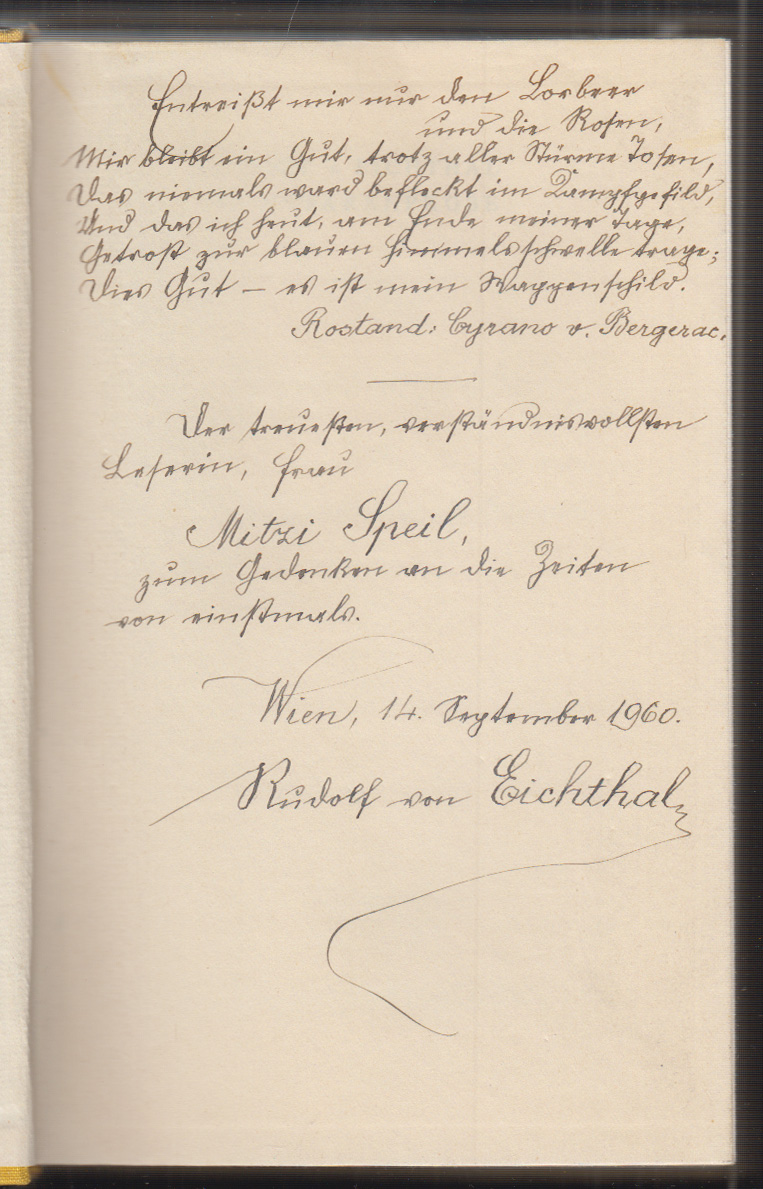 Entreißt mir nur den Lorbeer
und die Rosen,
Mir bleibt ein Gut, trotz aller Stürme Tosen,
Das niemals ward befleckt im Kampfgefild,
Und das ich heut, am Ende meiner Tage,
Getrost zur blauen Himmelsschwelle trage;
Dies Gut – es ist mein Wappenschild.
Rostand: Cyrano v. Bergerac.
Der treuesten, verständnisvollsten
Leserin, Frau
Mitzi Speil,
zum Gedenken an die Zeiten
von einstmals.
Wien, 14. September 1960.
Rudolf von Eichthal